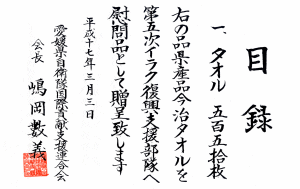 目録
一、タオル 五百五拾枚
右の品県産品今治タオルを
第五次イラク復興支援部隊へ
慰問品として贈呈致します
平成十七年三月三日
愛媛県自衛隊国際貢献支援連合会
会長 嶋岡数義